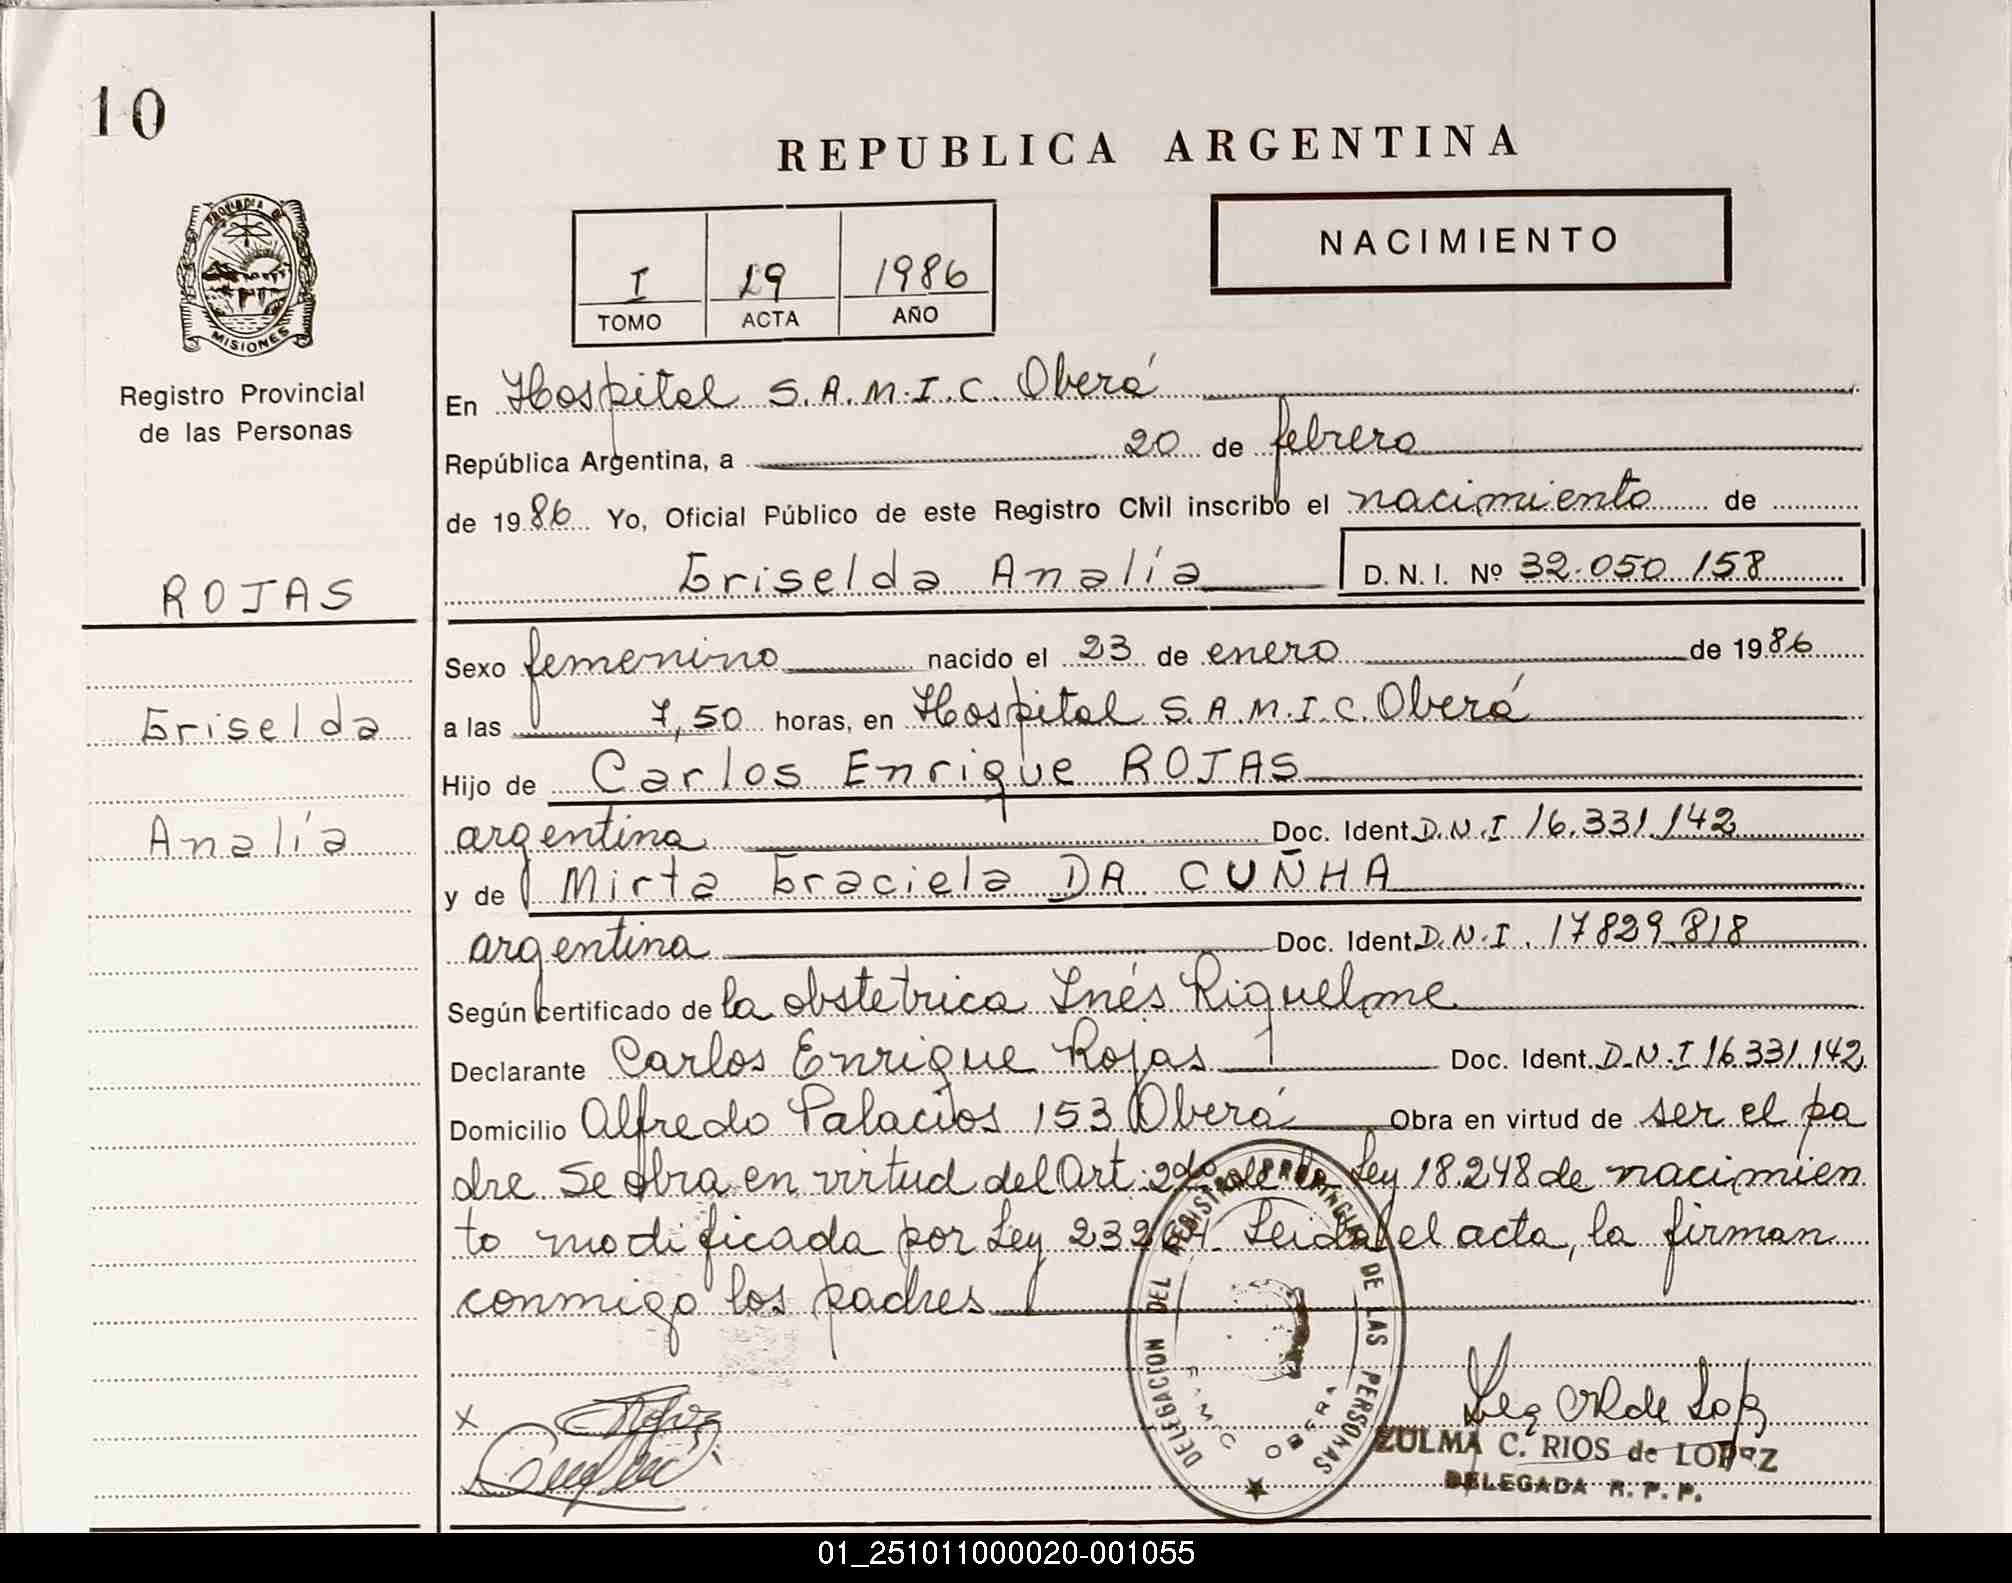 10
REPUBLICA ARGENTINA
PROVINCIA DE
MISIONES
Registro Provincial
de las Personas
I 19 1986
TOMO ACTA AÑO
NACIMIENTO
En Hospital S.A.M.I.C. Oberá
República Argentina, a 20 de febrero
de 1986 Yo, Oficial Público de este Registro Civil inscribo el nacimiento de
Griselda Analía D. N. I. Nº 32.050.158
ROJAS
Griselda
Analía
Sexo femenino nacido el 23 de enero de 1986
a las 7,50 horas, en Hospital S.A.M.I.C. Oberá
Hijo de Carlos Enrique ROJAS
argentina Doc. Ident. D.N.I 16.331.142
y de Mirta Graciela DA CUÑHA
argentina Doc. Ident. D.N.I. 17829818
Según certificado de la obstetrica Inés Riquelme
Declarante Carlos Enrique Rojas Doc. Ident. D.N.I 16.331.142
Domicilio Alfredo Palacios 153 Oberá Obra en virtud de ser el pa
dre Se obra en virtud del Art. 2do de la Ley 18.248 de nacimien
to modificada por Ley 23264. Leida el acta, la firman
conmigo los padres
DELEGACION DEL REGISTRO PROVINCIAL DE LAS PERSONAS
OBERA
X
ZULMA C. RIOS de LOPEZ
DELEGADA R. P. P.
01_251011000020-001055